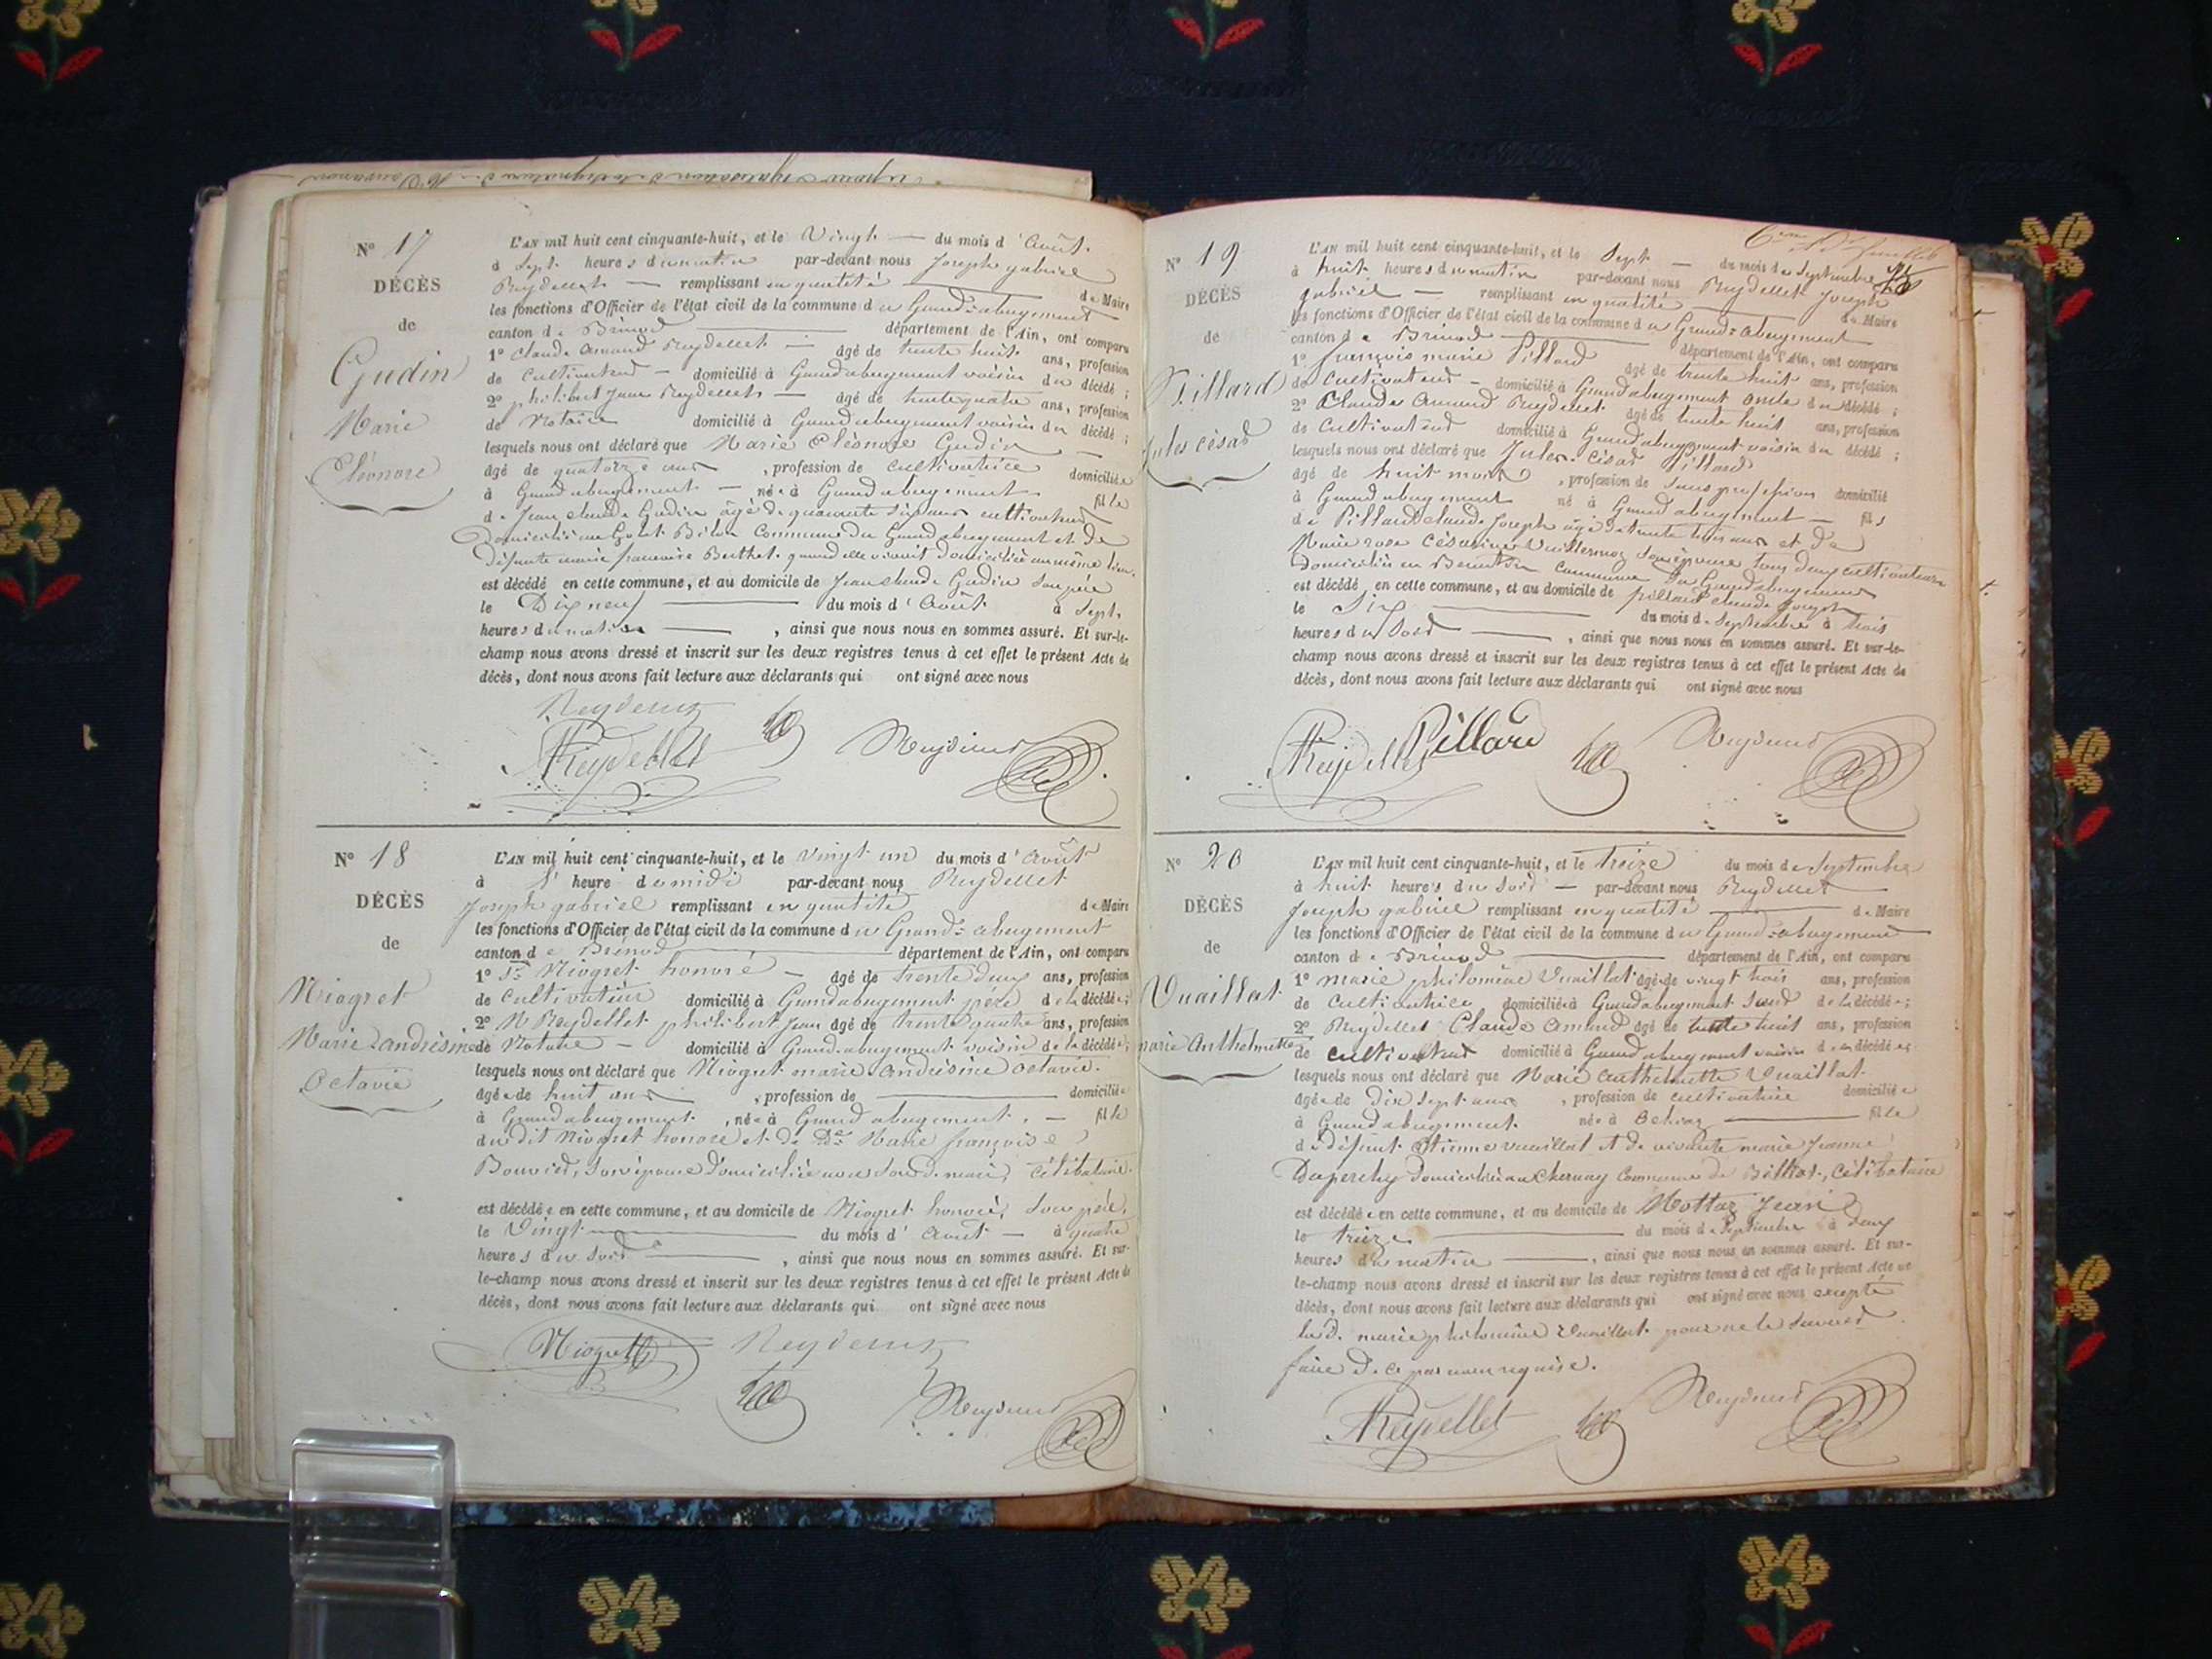 N° 17
DÉCÈS
de
Gudin
Marie
Eléonore
L'AN mil huit cent cinquante-huit, et le Vingt — du mois d'Août
à Sept heures du matin par-devant nous Joseph gabriel
Reydellet — remplissant en qualité de Maire
les fonctions d'Officier de l'état civil de la commune du Grand-abergement
canton de Brénod département de l'Ain, ont comparu
1° Claude Amand Reydellet — âgé de trente huit ans, profession
de Cultivateur — domicilié à Grandabergement voisin du décédé ;
2° philibert Jean Reydellet — âgé de trente quatre ans, profession
de Notaire domicilié à Grandabergement voisin du décédé ;
lesquels nous ont déclaré que Marie Eléonore Gudin —
âgé de quatorze ans , profession de cultivatrice domiciliée
à Grandabergement — née à Grandabergement fille
de Jean claude Gudin âgé de quarante six ans cultivateur
Domicilié au Commune du Grandabergement et de
Défunte marie francoise Berthet quand elle vivait domiciliée au même lieu.
est décédé en cette commune, et au domicile de Jean claude Gudin son père
le Dix neuf — du mois d'Août à Sept
heures du matin — , ainsi que nous nous en sommes assuré. Et sur-le-
champ nous avons dressé et inscrit sur les deux registres tenus à cet effet le présent Acte de
décès, dont nous avons fait lecture aux déclarants qui ont signé avec nous
Reydellet
Reydellet Reydellet
N° 18
DÉCÈS
de
Niogret
Marie andrésine
Octavie
L'AN mil huit cent cinquante-huit, et le vingt un du mois d'Août
à 1 heure de midi par-devant nous Reydellet
Joseph gabriel remplissant en qualité de Maire
les fonctions d'Officier de l'état civil de la commune du Grand-abergement
canton de Brénod département de l'Ain, ont comparu
1° Sr Niogret honoré — âgé de trente deux ans, profession
de Cultivateur domicilié à Grandabergement père de la décédée ;
2° M Reydellet philibert Jean âgé de trente quatre ans, profession
de Notaire — domicilié à Grand-abergement voisin de la décédée ;
lesquels nous ont déclaré que Niogret marie andrésine octavie.
âgée de huit ans , profession de — domiciliée
à Grandabergement , née à Grandabergement. — fille
du dit Niogret honoré et de De Marie françoise
Bouvier, son épouse domiciliée avec son d. mari, Célibataire.
est décédée en cette commune, et au domicile de Niogret honoré, son père,
le Vingt — du mois d'Août — à quatre
heures du soir — , ainsi que nous nous en sommes assuré. Et sur-
le-champ nous avons dressé et inscrit sur les deux registres tenus à cet effet le présent Acte de
décès, dont nous avons fait lecture aux déclarants qui ont signé avec nous
Niogret Reydellet
Reydellet
N° 19
DÉCÈS
de
Pillard
Jules césar
L'AN mil huit cent cinquante-huit, et le Sept — du mois de Septembre
à huit heures du matin par-devant nous Reydellet Joseph
gabriel — remplissant en qualité de Maire
les fonctions d'Officier de l'état civil de la commune du Grand-abergement
canton de Brénod département de l'Ain, ont comparu
1° françois marie Pillard âgé de trente huit ans, profession
de Cultivateur — domicilié à Grandabergement oncle du décédé ;
2° Claude Amand Reydellet âgé de trente huit ans, profession
de Cultivateur domicilié à Grandabergement voisin du décédé ;
lesquels nous ont déclaré que Jules-César Pillard
âgé de huit mois , profession de sans profession domicilié
à Grandabergement né à Grandabergement — fils
de Pillard claude Joseph âgé de trente trois ans et de
Marie rose Césarine Vuillermoz son épouse tous deux cultivateurs
domiciliés en commune du Grandabergement
est décédé en cette commune, et au domicile de pillard claude Joseph
le Six — du mois de Septembre à trois
heures du soir — , ainsi que nous nous en sommes assuré. Et sur-le-
champ nous avons dressé et inscrit sur les deux registres tenus à cet effet le présent Acte de
décès, dont nous avons fait lecture aux déclarants qui ont signé avec nous
Reydellet Pillard Reydellet
N° 20
DÉCÈS
de
Vuaillat
marie Anthelmette
L'AN mil huit cent cinquante-huit, et le treize du mois de Septembre
à huit heures du soir — par-devant nous Reydellet
Joseph gabriel remplissant en qualité — de Maire
les fonctions d'Officier de l'état civil de la commune du Grand-abergement
canton de Brénod département de l'Ain, ont comparu
1° marie philomène Vuaillat âgé de vingt trois ans, profession
de cultivatrice domiciliée à Grandabergement soeur de la décédée ;
2° Reydellet Claude Amand âgé de trente huit ans, profession
de cultivateur domicilié à Grandabergement voisin de la décédée
lesquels nous ont déclaré que Marie Anthelmette Vuaillat
âgée de dix sept ans , profession de cultivatrice domiciliée
à Grandabergement née à — fille
de défunt Etienne vuaillat et de vivante marie Jeanne
Duperchy domiciliée au Chernay commune de Billiat, célibataire
est décédée en cette commune, et au domicile de Mottaz Jean
le treize — du mois de Septembre à deux
heures du matin — , ainsi que nous nous en sommes assuré. Et sur-
le-champ nous avons dressé et inscrit sur les deux registres tenus à cet effet le présent Acte de
décès, dont nous avons fait lecture aux déclarants qui ont signé avec nous excepté
lad. marie philomène Vuaillat pour ne le savoir
faire de ce par nous requise.
Reydellet Reydellet